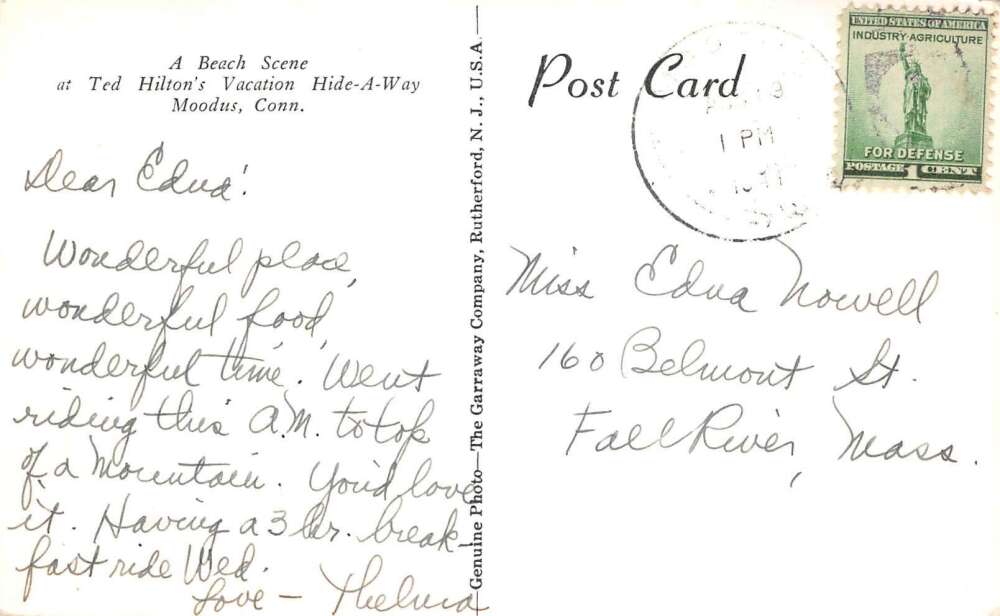 A Beach Scene
at Ted Hilton's Vacation Hide-A-Way
Moodus, Conn.
Dear Edna!
Wonderful place,
wonderful food,
wonderful time. Went
riding this A.M. to top
of a mountain. You'd love
it. Having a 3 hr. break-
fast ride Wed.
Love - Thelma
Genuine Photo—The Garraway Company, Rutherford, N. J., U.S.A.
Post Card
1 PM
UNITED STATES OF AMERICA
INDUSTRY·AGRICULTURE
FOR DEFENSE
POSTAGE 1 CENT
Miss Edna Nowell
160 Belmont St.
Fall River, Mass.